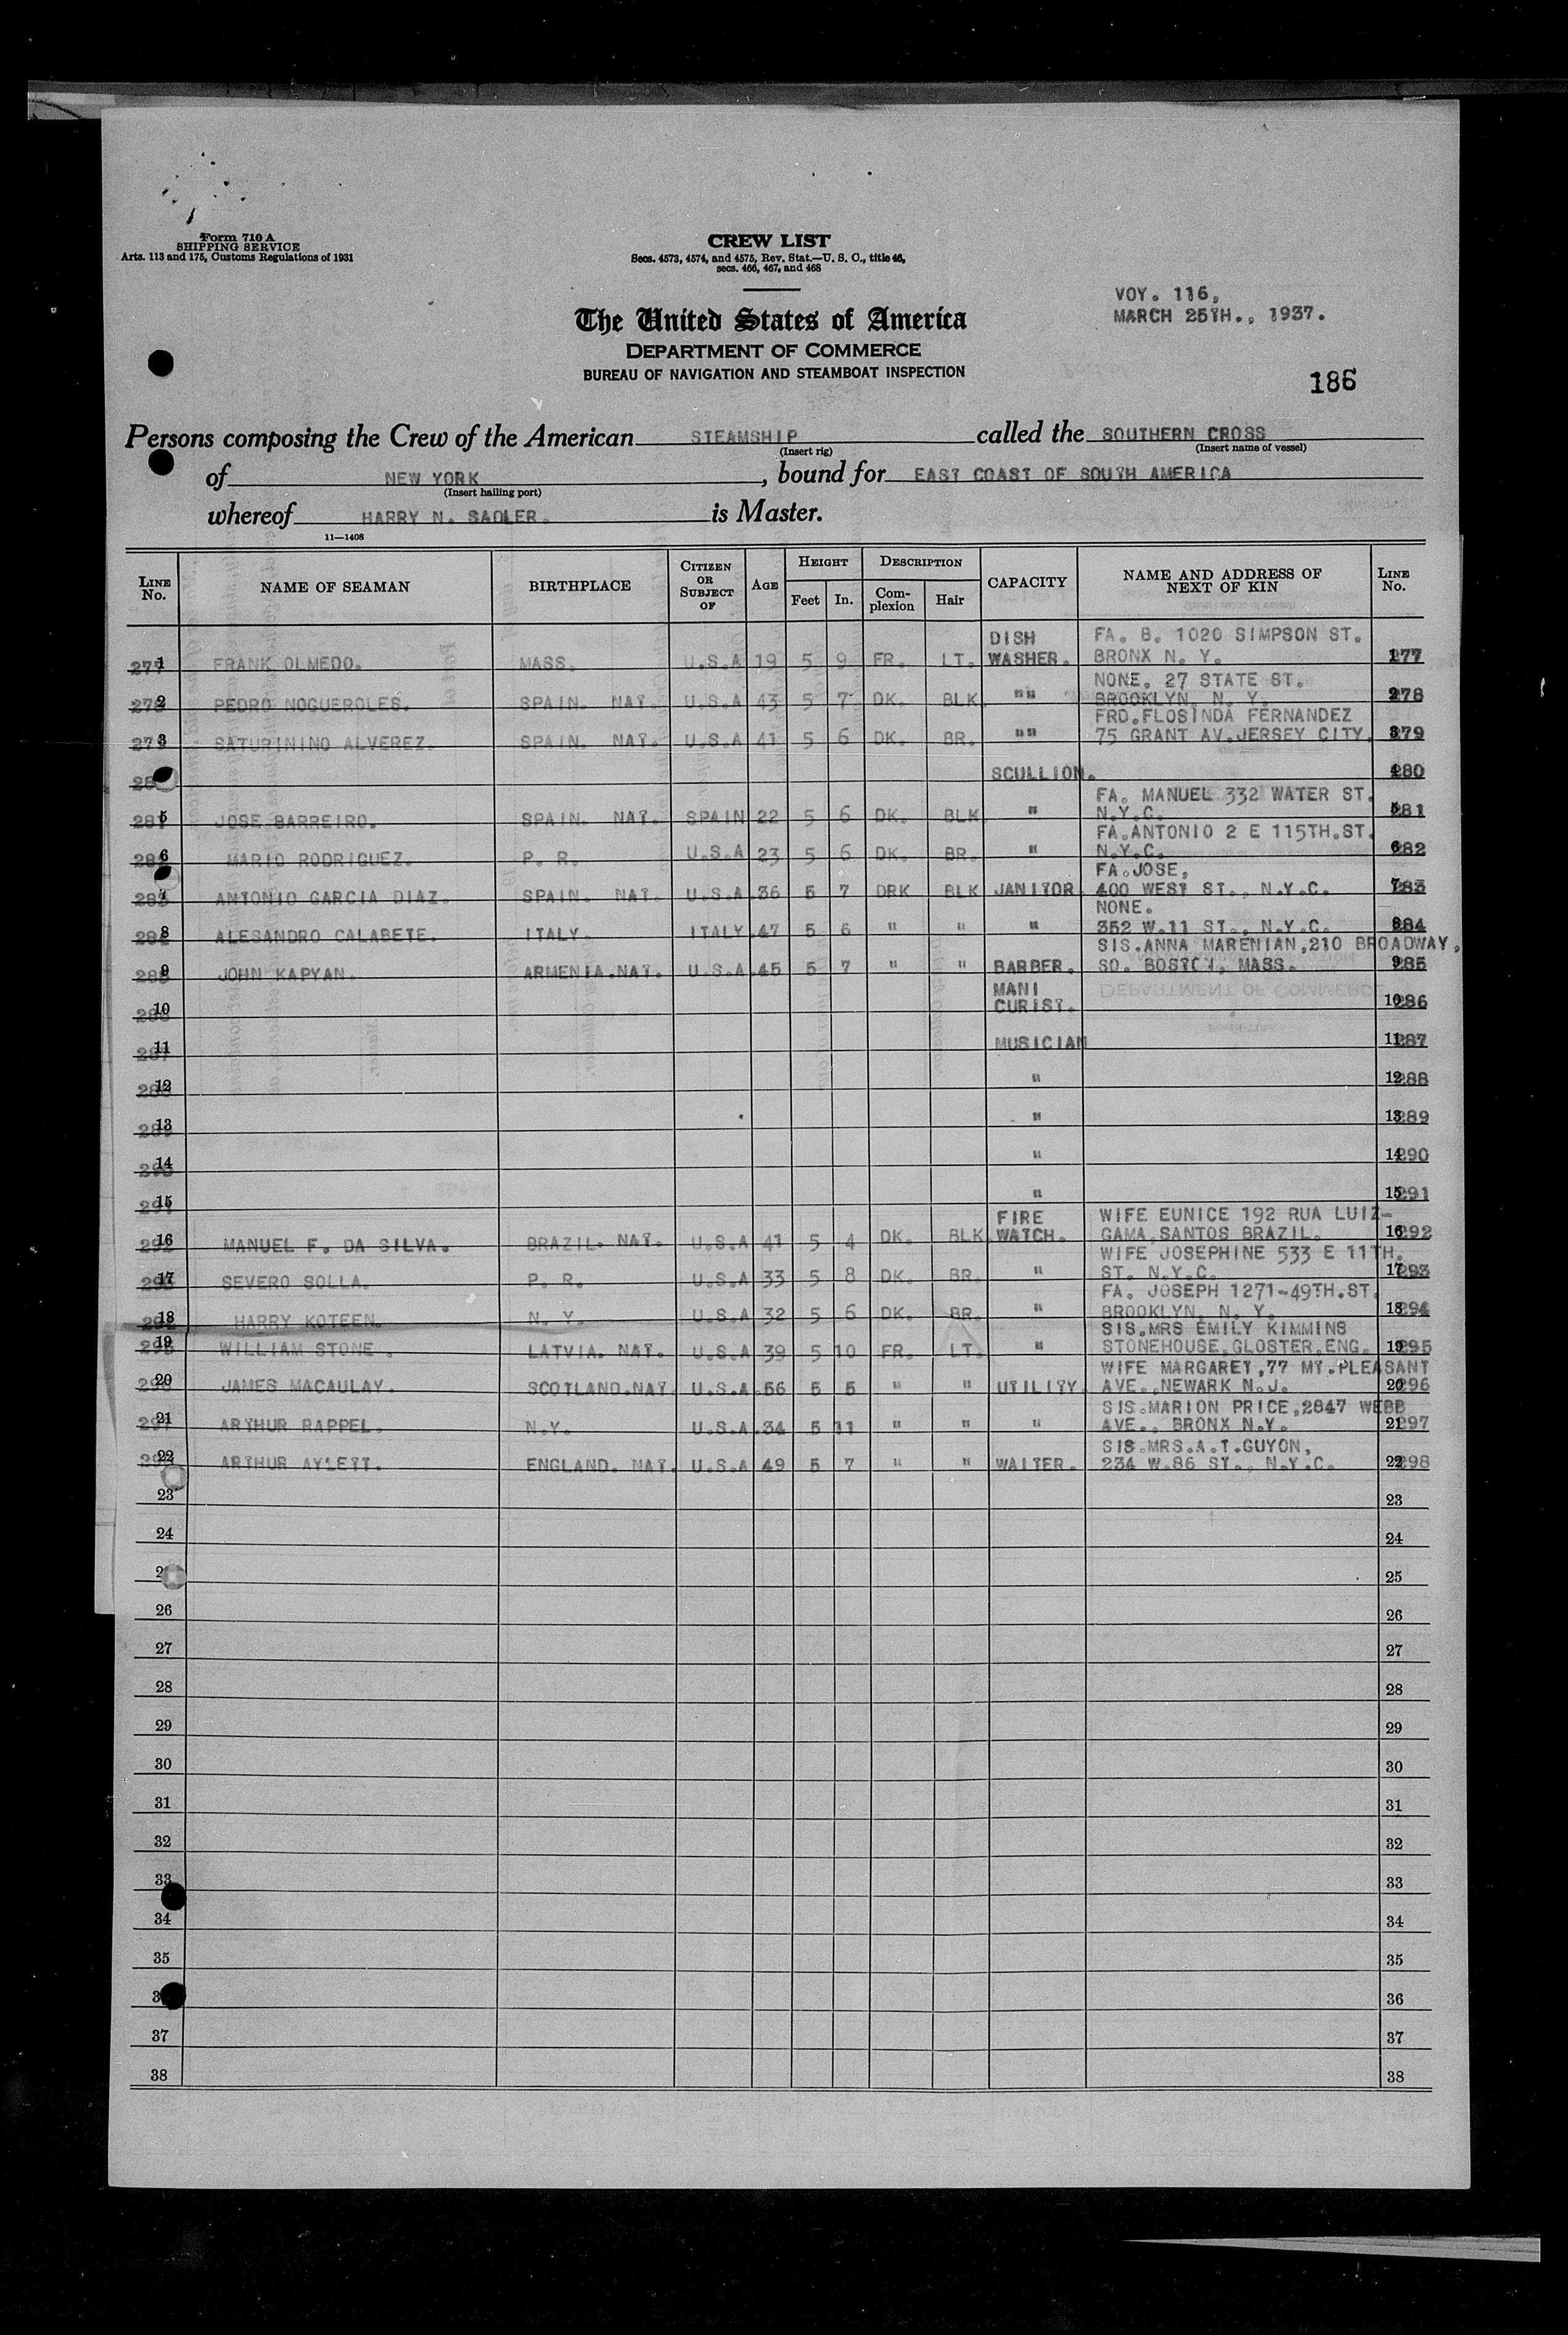 Form 710 A
SHIPPING SERVICE
Arts. 113 and 175, Customs Regulations of 1931
CREW LIST
Secs. 4573, 4574, and 4575, Rev. Stat.—U. S. C., title 46,
secs. 466, 467, and 468
VOY. 116,
MARCH 25TH., 1937.
The United States of America
DEPARTMENT OF COMMERCE
BUREAU OF NAVIGATION AND STEAMBOAT INSPECTION
186
Persons composing the Crew of the American STEAMSHIP called the SOUTHERN CROSS
(Insert rig) (Insert name of vessel)
of NEW YORK, bound for EAST COAST OF SOUTH AMERICA
(Insert hailing port)
whereof HARRY N. SADLER. is Master.
11—1408
LINE No. NAME OF SEAMAN BIRTHPLACE CITIZEN OR SUBJECT OF AGE HEIGHT Feet In. DESCRIPTION Complexion Hair CAPACITY NAME AND ADDRESS OF NEXT OF KIN LINE No.
DISH FA. B. 1020 SIMPSON ST.
277 1 FRANK OLMEDO. MASS. U.S.A 19 5 9 FR. LT. WASHER. BRONX N. Y. 277
NONE. 27 STATE ST.
278 2 PEDRO NOGUEROLES. SPAIN. NAT. U.S.A 43 5 7 DK. BLK. "" BROOKLYN. N. Y. 278
FRD.FLOSINDA FERNANDEZ
279 3 SATURININO ALVEREZ. SPAIN. NAT. U.S.A 41 5 6 DK. BR. "" 75 GRANT AV.JERSEY CITY. 3 279
SCULLION. 4 280
FA. MANUEL 332 WATER ST.
281 5 JOSE BARREIRO. SPAIN. NAT. SPAIN 22 5 6 DK. BLK " N.Y.C. 5 281
FA.ANTONIO 2 E 115TH.ST.
282 6 MARIO RODRIGUEZ. P. R. U.S.A 23 5 6 DK. BR. " N.Y.C. 6 282
FA.JOSE,
283 7 ANTONIO GARCIA DIAZ. SPAIN. NAT. U.S.A.36 5 7 DRK BLK JANITOR. 400 WEST ST., N.Y.C. 7 283
NONE.
284 8 ALESANDRO CALABETE. ITALY. ITALY.47 5 6 " " " 352 W.11 ST., N.Y.C. 8 284
SIS.ANNA MARENIAN,210 BROADWAY,
285 9 JOHN KAPYAN. ARMENIA.NAT. U.S.A.45 5 7 " " BARBER. SO. BOSTON, MASS. 9 285
MANI
286 10 CURIST. 10 286
287 11 MUSICIAN 11 287
288 12 " 12 288
289 13 " 13 289
290 14 " 14 290
291 15 " 15 291
FIRE WIFE EUNICE 192 RUA LUIZ-
292 16 MANUEL F. DA SILVA. BRAZIL. NAT. U.S.A 41 5 4 DK. BLK.WATCH. GAMA.SANTOS BRAZIL. 16 292
WIFE JOSEPHINE 533 E 11TH.
293 17 SEVERO SOLLA. P. R. U.S.A 33 5 8 DK. BR. " ST. N.Y.C. 17 293
FA. JOSEPH 1271-49TH.ST.
294 18 HARRY KOTEEN. N. Y. U.S.A 32 5 6 DK. BR. " BROOKLYN. N. Y. 18 294
SIS.MRS EMILY KIMMINS
295 19 WILLIAM STONE . LATVIA. NAT. U.S.A 39 5 10 FR. LT. " STONEHOUSE,GLOSTER,ENG. 19 295
WIFE MARGARET,77 MT.PLEASANT
296 20 JAMES MACAULAY. SCOTLAND.NAT. U.S.A.56 5 5 " " UTILITY. AVE.,NEWARK N.J. 20 296
SIS.MARION PRICE,2847 WEBB
297 21 ARTHUR RAPPEL. N.Y. U.S.A.34 5 11 " " " AVE., BRONX N.Y. 21 297
SIS.MRS.A.T.GUYON,
298 22 ARTHUR AYLETT. ENGLAND. NAT. U.S.A 49 5 7 " " WAITER. 234 W.86 ST., N.Y.C. 22 298
23 23
24 24
25
26 26
27 27
28 28
29 29
30 30
31 31
32 32
33 33
34 34
35 35
36
37 37
38 38